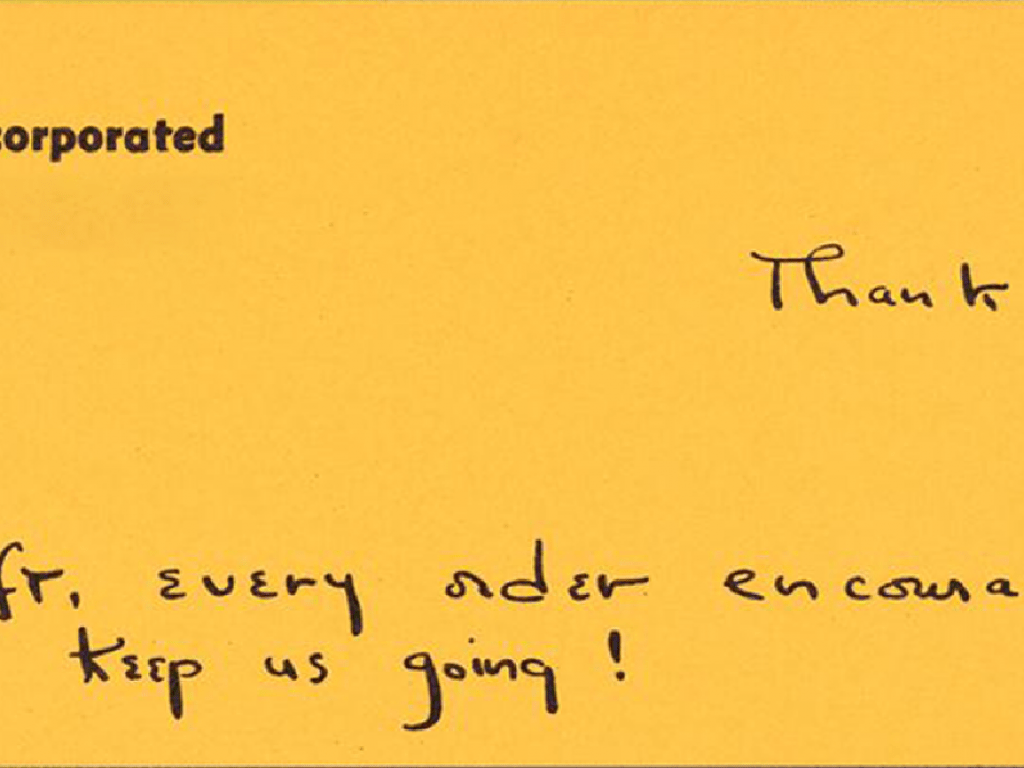 corporated
Thank
ft, every order encoura
keep us going !